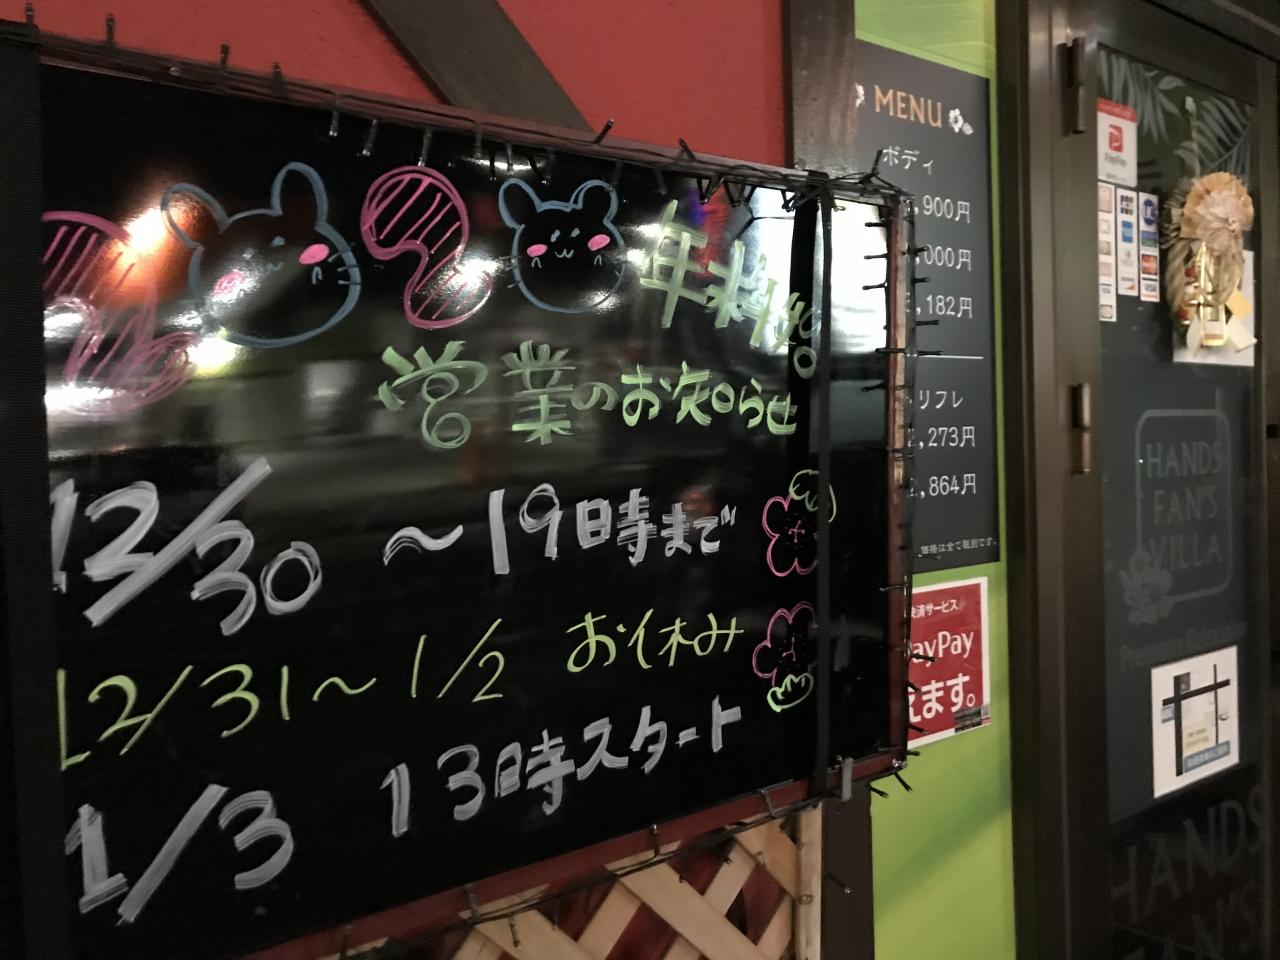 2020
年末年始
営業のお知らせ
12/30 〜19時まで
12/31〜1/2 お休み
1/3 13時スタート
MENU
ボディ
,900円
,000円
,182円
リフレ
,273円
,864円
価格は全て税別です。
決済サービス
PayPay
えます。
PayPay
JCB
VISA
VISA
HANDS
FAN'S
VILLA
HANDS
FAN'S